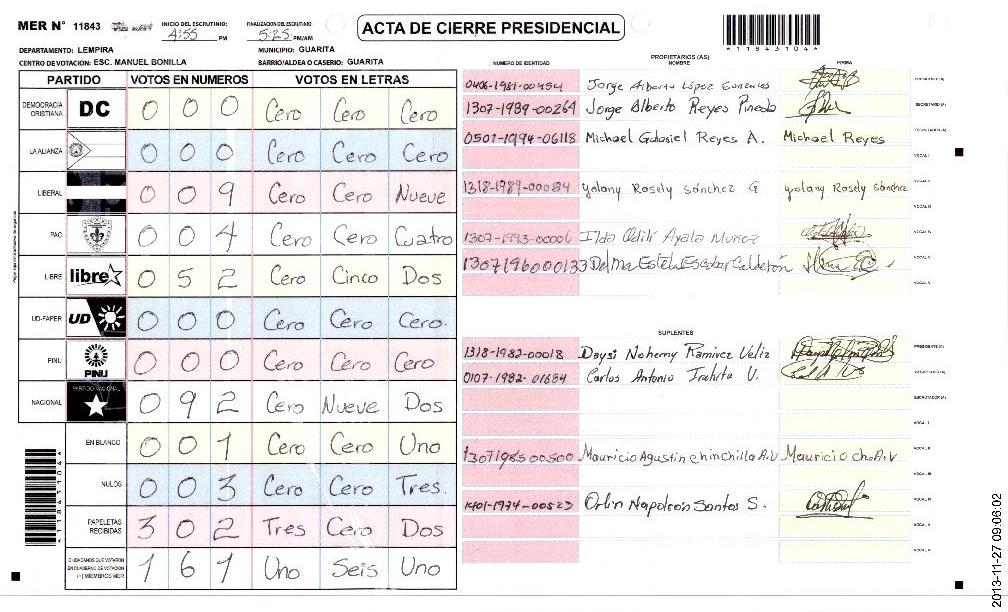 MER N° 11843
INICIO DEL ESCRUTINIO: 4:55 PM
FINALIZACION DEL ESCRUTINIO 5:25 PM/AM
ACTA DE CIERRE PRESIDENCIAL
*11843104*
DEPARTAMENTO: LEMPIRA
MUNICIPIO: GUARITA
CENTRO DE VOTACION: ESC. MANUEL BONILLA
BARRIO/ALDEA O CASERIO: GUARITA
PARTIDO VOTOS EN NUMEROS VOTOS EN LETRAS
DEMOCRACIA CRISTIANA DC 0 0 0 Cero Cero Cero
LA ALIANZA 0 0 0 Cero Cero Cero
LIBERAL 0 0 9 Cero Cero Nueve
PAC 0 0 4 Cero Cero Cuatro
LIBRE libre 0 5 2 Cero Cinco Dos
UD-FAPER UD 0 0 0 Cero Cero Cero.
PINU PINU 0 0 0 Cero Cero Cero
NACIONAL PARTIDO NACIONAL 0 9 2 Cero Nueve Dos
EN BLANCO 0 0 1 Cero Cero Uno
NULOS 0 0 3 Cero Cero Tres.
PAPELETAS RECIBIDAS 3 0 2 Tres Cero Dos
CIUDADANOS QUE VOTARON EN CUADERNO DE VOTACION (+) MIEMBROS MER 1 6 1 Uno Seis Uno
*11843104*
PROPIETARIOS (AS)
NUMERO DE IDENTIDAD NOMBRE FIRMA
0406-1981-00454 Jorge Alberto López Gonzales PRESIDENTE (A)
1307-1989-00264 Jorge Alberto Reyes Pineda SECRETARIO (A)
0507-1994-06118 Michael Gabriel Reyes A. Michael Reyes ESCRUTADOR (A)
VOCAL I
1318-1989-00084 Yolany Rosely Sánchez G Yolany Rosely Sánchez VOCAL II
VOCAL III
1307-1993-00006 Ilda Odili Ayala Muñoz VOCAL IV
1307196000133 Delma Estela Escobar Calderón
VOCAL V
SUPLENTES
1318-1982-00018 Daysi Nohemy Ramirez Veliz PRESIDENTE (A)
0107-1982-01684 Carlos Antonio V. SECRETARIO (A)
ESCRUTADOR (A)
VOCAL I
1307198500500 Mauricio Agustin chinchilla A.V Mauricio ch.A.V. VOCAL II
VOCAL III
1401-1974-00523 Orlin Napoleón Santos S. VOCAL IV
VOCAL V
2013-11-27 09:06:02